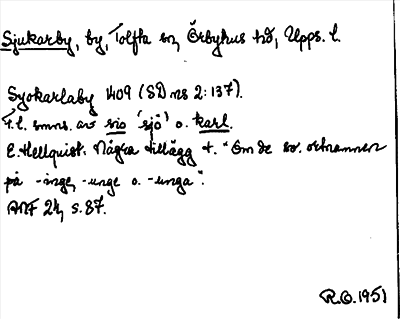 Sjukarby, by, Tolfta sn, Örbyhus hd, Upps. l.
Syokarlaby 1409 (SD ns 2:137).
F.l. smns. av sio 'sjö' o. karl.
E. Hellquist: Några tillägg t. "Om de sv. ortnamnen
på -inge, -unge o. -unga".
ANF 24, s. 87.
R.O. 1951